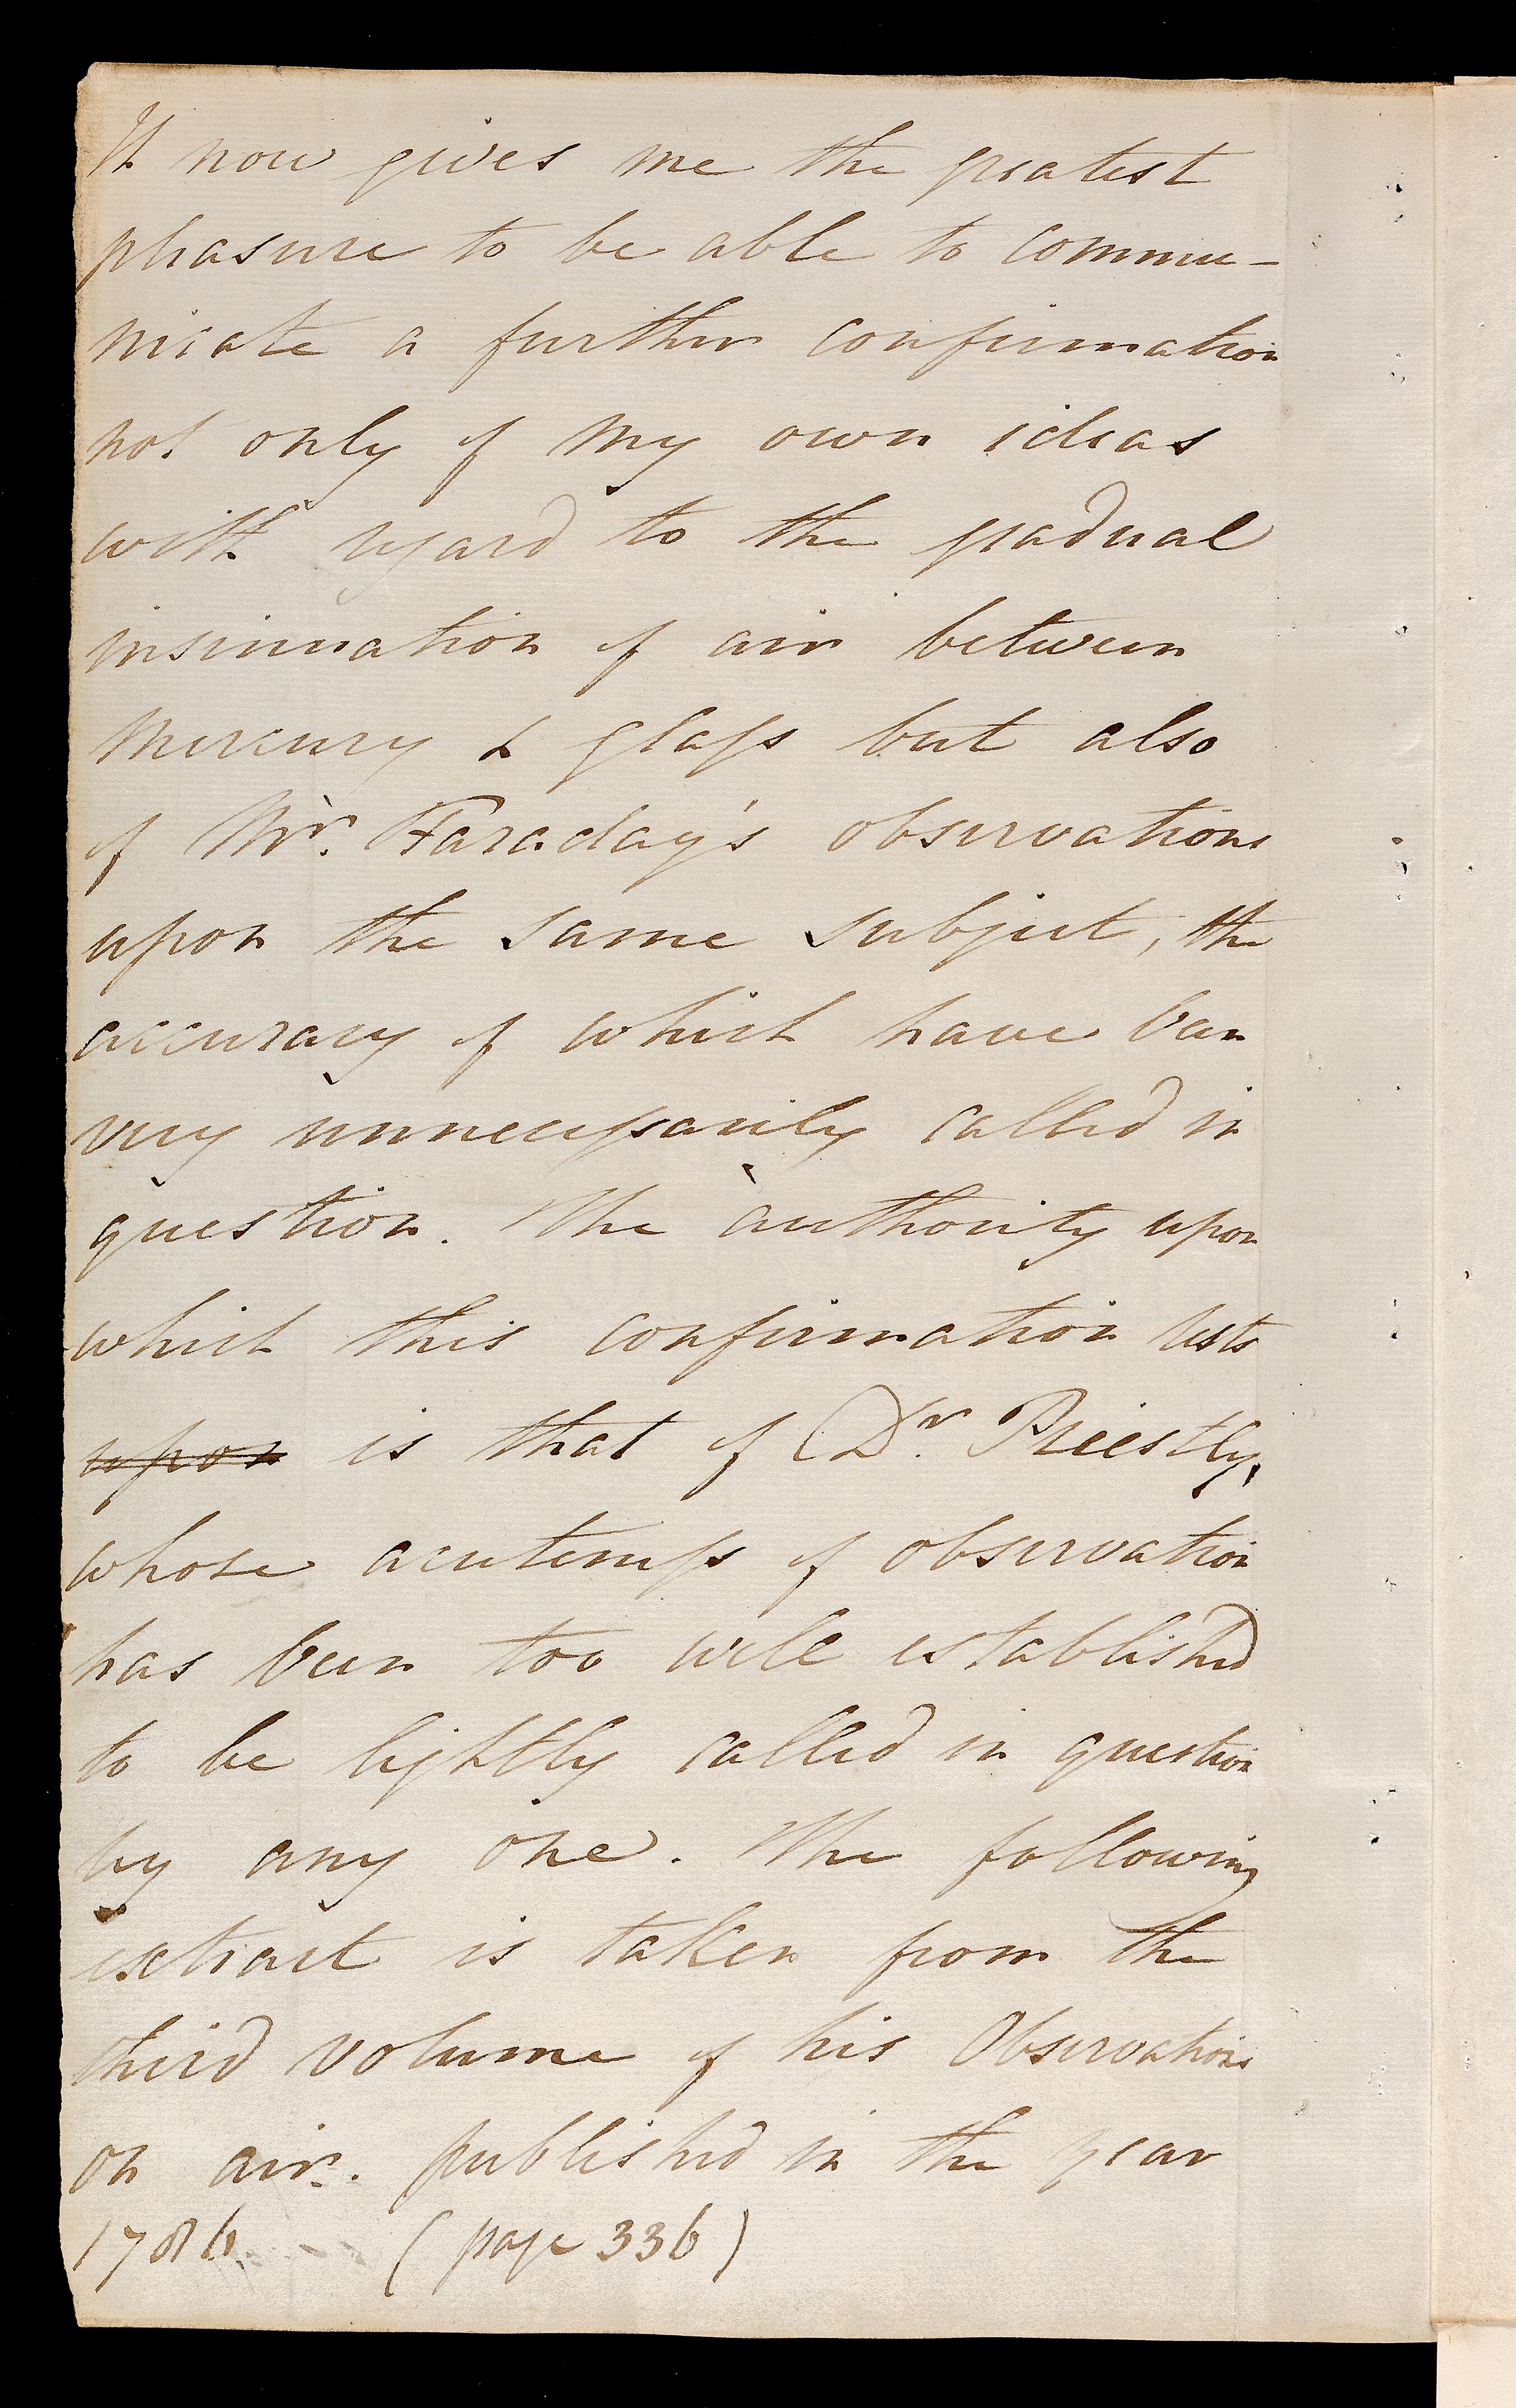 It now gives me the greatest
pleasure to be able to commu-
nicate a further confirmation
not only of my own ideas
with regard to the gradual
insinuation of air between
Mercury & glass but also
of Mr. Faraday's observations
upon the same subject, the
accuracy of which have been
very unnecessarily called in
question. The authority upon
which this confirmation rests
upon is that of Dr. Priestly,
whose acuteness of observation
has been too well established
to be lightly called in question
by any one. The following
extract is taken from the
third volume of his Observations
on air. published in the year
1786. (page 336)